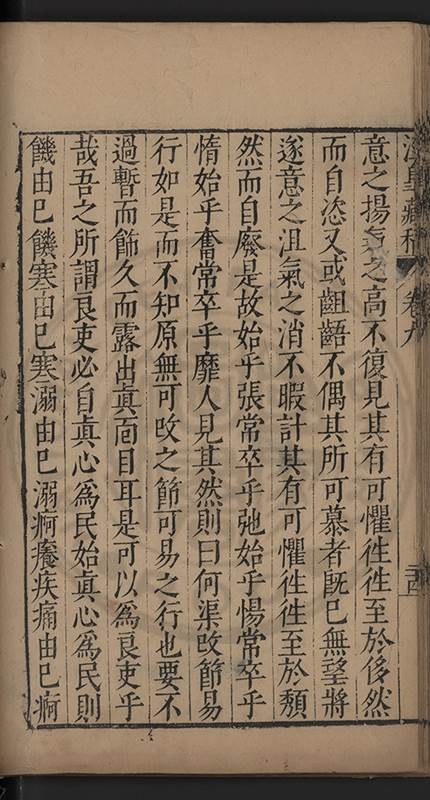 意之揚氣之高不復見其有可懼徃徃至於侈然
而自恣又或齟齬不偶其所可慕者旣已無望將
遂意之沮氣之消不暇計其有可懼徃徃至於頽
然而自廢是故始乎張常卒乎弛始乎惕常卒乎
惰始乎奮常卒乎靡人見其然則曰何渠改節易
行如是而不知原無可改之節可易之行也要不
過暫而餙久而露出真面目耳是可以爲良吏乎
哉吾之所謂良吏必自真心爲民始真心爲民則
饑由已饑寒由已寒溺由已溺痾癢疾痛由已痾